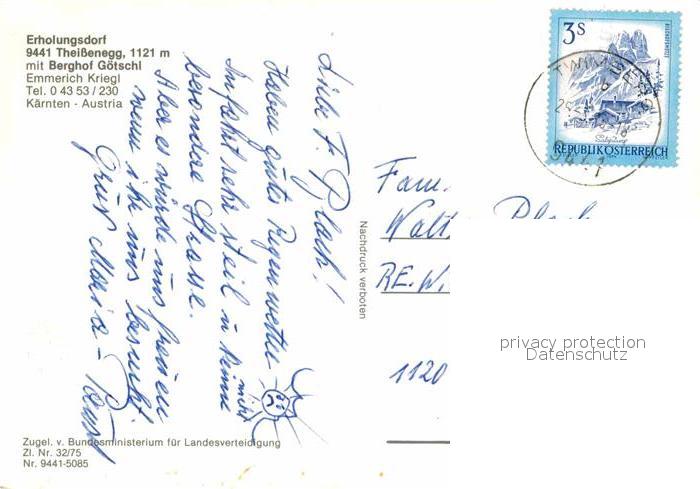 Erholungsdorf
9441 Theißenegg, 1121 m
mit Berghof Götschl
Emmerich Kriegl
Tel. 0 43 53 / 230
Kärnten - Austria
3 S
REPUBLIK ÖSTERREICH
9441
Liebe F. Plach!
Haben gutes Regenwetter
Infahrt sehr steil u
besondere Strasse.
Aber es würde uns freuen
wenn ihr uns besucht
Gruß Maria -
Fam.
Walt
RE. W
1120
Nachdruck verboten
privacy protection
Datenschutz
Zugel. v. Bundesministerium für Landesverteidigung
Zl. Nr. 32/75
Nr. 9441-5085